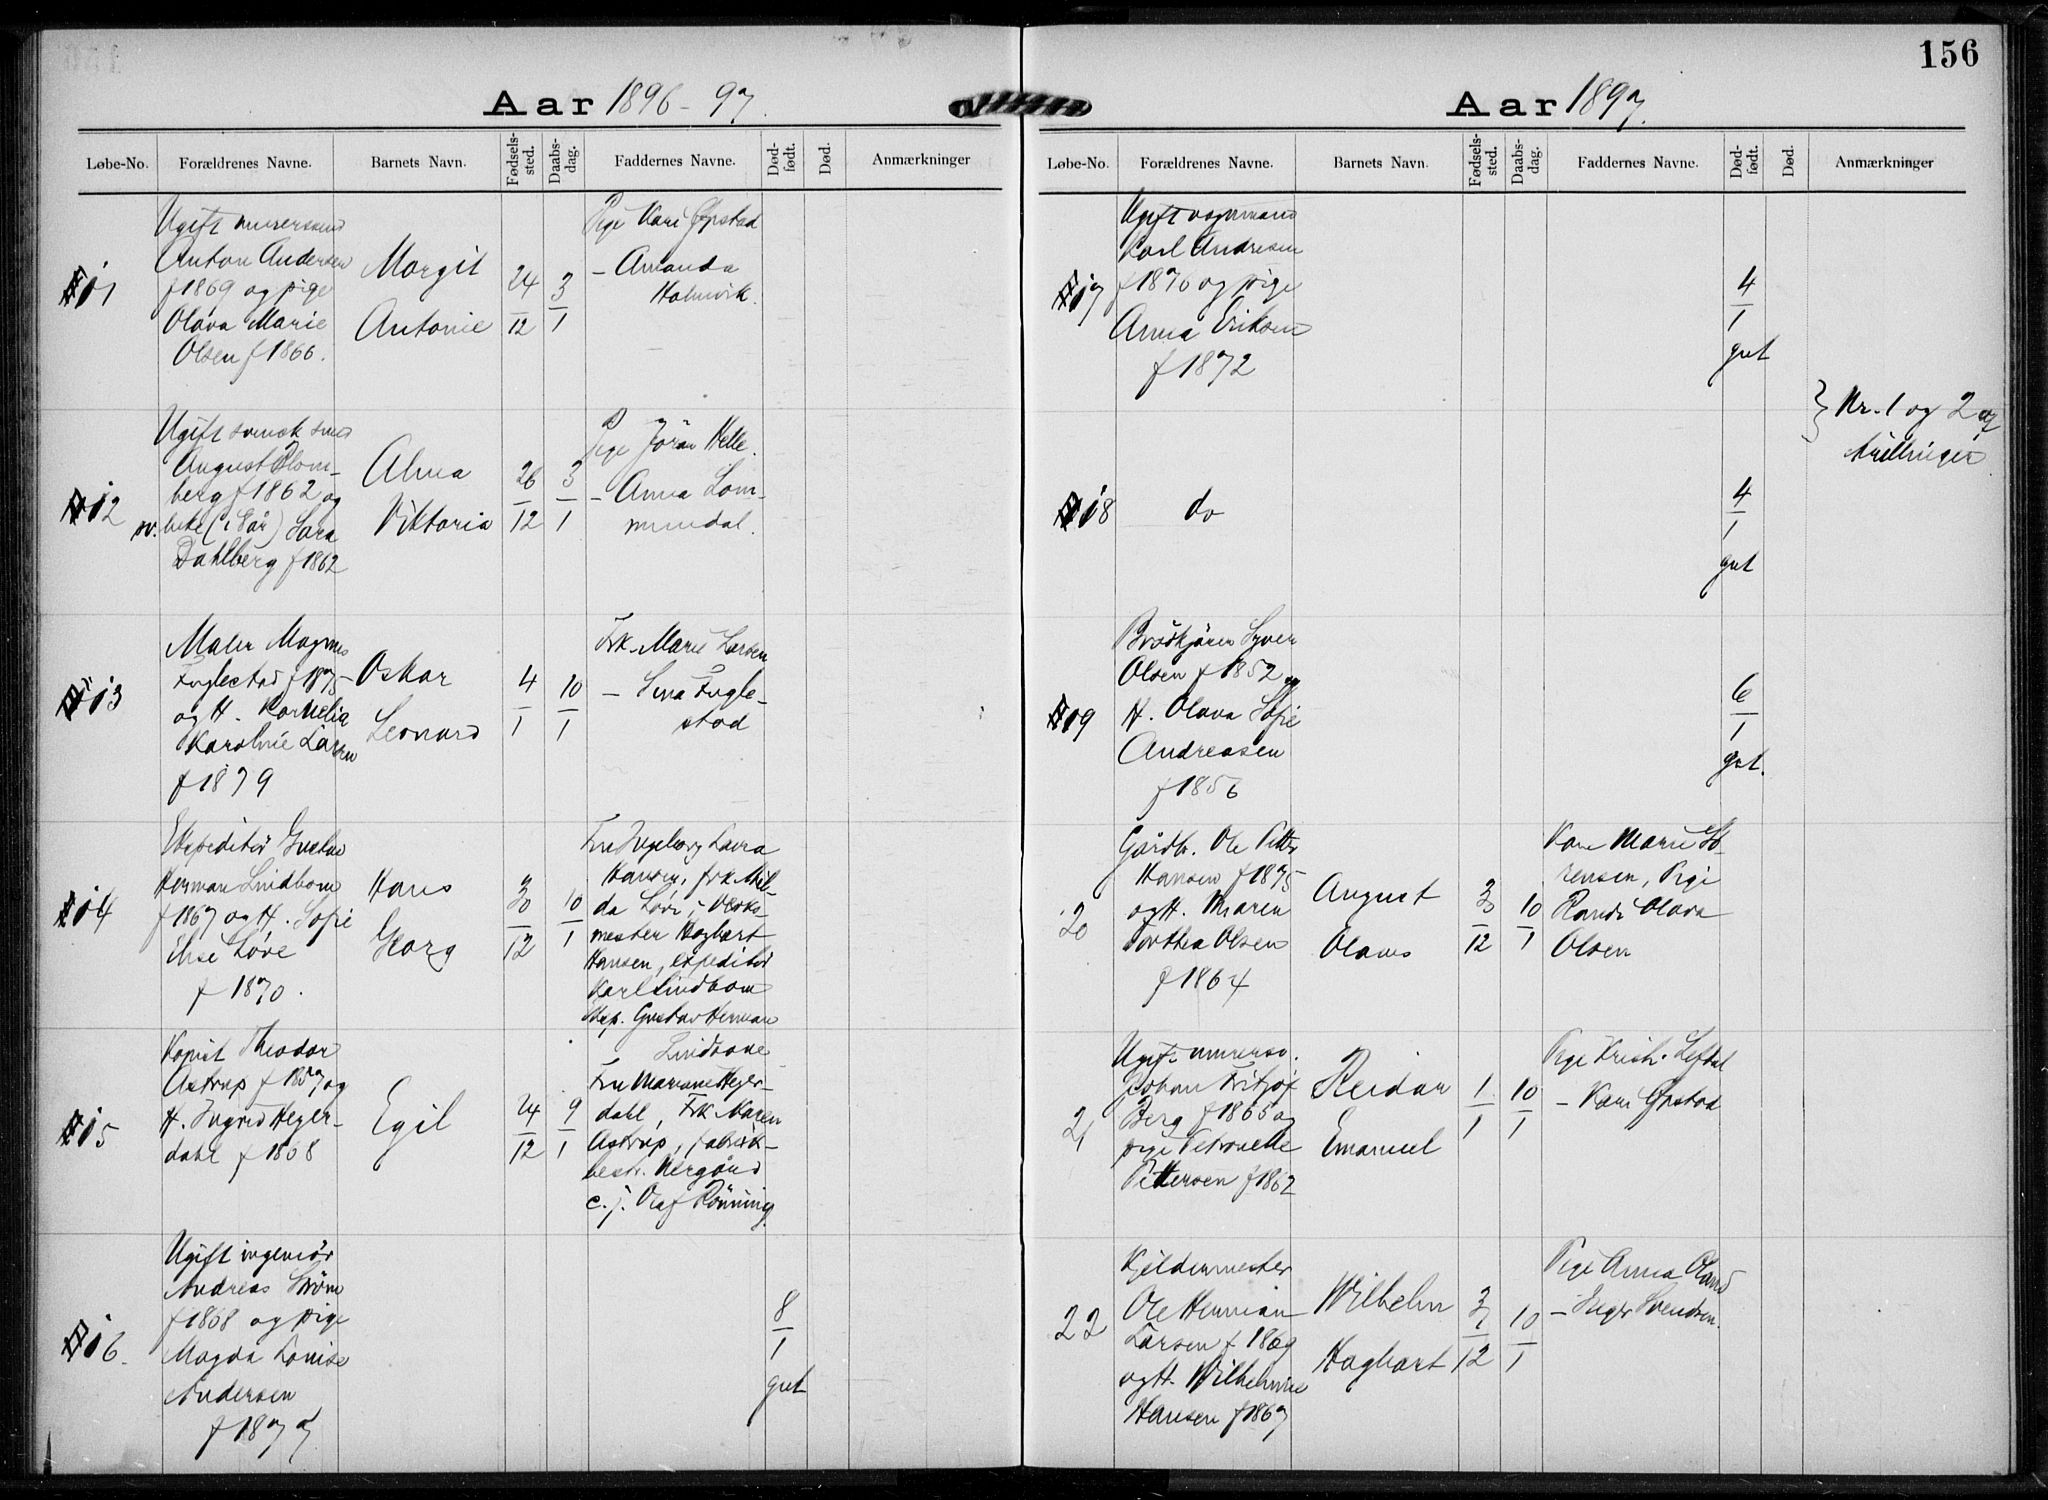 156
Aar 1896-97.
Løbe-No. Forældrenes Navne. Barnets Navn. Fødsels-sted. Daabs-dag. Faddernes Navne. Død-født. Død. Anmærkninger
11
Ugift murersvend
Anton Andersen
f 1869 og pige
Olava Marie
Olsen f 1866.
Margit
Antonie
24/12
3/1
Pige Kari Opstad
– Amanda
Holmvik.
12
Ugift svensk smed
August Blom-
berg f 1862 og
Sara
Dahlberg f 1862
Alma
Viktoria
26/12
3/1
Pige Jöran Helle.
– Anna Lom-
mundal.
13
Maler Magnus
Fuglestad f 1875
og H. Kornelia
Karoline Larsen
f 1879
Oskar
Leonard
4/1
10/1
Frk. Marie Larsen
– Sina Fugle-
stad
14
Ekspeditör Gustav
Herman Lindbom
f 1867 og H. Sofie
Löve
f 1870.
Hans
Georg
30/12
10/1
Fru Ingeborg Laura
Hansen, frk. Mil-
da Löve, verks-
mester Hagbart
Hansen, expeditör
Karl Lindbom
Exp. Gustav Herman
Lindbom
15
Kopist Theodor
Astrup f 1857 og
H. Ingrid Heyer-
dahl f 1868
Egil
24/12
9/1
Fru Mariane Heyer-
dahl, Frk. Karen
Astrup, fabrik-
bestr. Nergård
c. j. Olaf Rönning
16.
Ugift ingeniör
Andreas Ström
f 1868 og pige
Magda Lovise
Andersen
f 1877
8/1
gut
Aar 1897.
Løbe-No. Forældrenes Navne. Barnets Navn. Fødsels-sted. Daabs-dag. Faddernes Navne. Død-født. Død. Anmærkninger
17
Ugift vognmand
Karl Andresen
f 1876 og pige
Anna Eriksen
f 1872
4/1
gut
} Nr. 1 og 2 af
trillinger
18
do
4/1
gut
19
Brödkjörer Syver
Olsen f 1852 og
H. Olava Sofie
Andreasen
f 1856
6/1
gut.
20
Gårdbr. Ole Petter
Hansen f 1875
og H. Maren
Dorthea Olsen
f 1864
August
Olaves
30/12
10/1
Kone Marie Sö-
rensen, Pige
Randi Olava
Olsen
21
Ugift murersv.
Johan Fritjof
Berg f 1865 og
pige Petronelle
Pettersen f 1862
Reidar
Emanuel
1/1
10/1
Pige Krist. Leftdal
– Kari Opstad
22
Kjeldermester
Ole Herman
Larsen f 1869
og H. Wilhelmine
Hansen f 1867
Wilhelm
Hagbart
31/12
10/1
Pige Anna Oland
– Inger Svendsen.